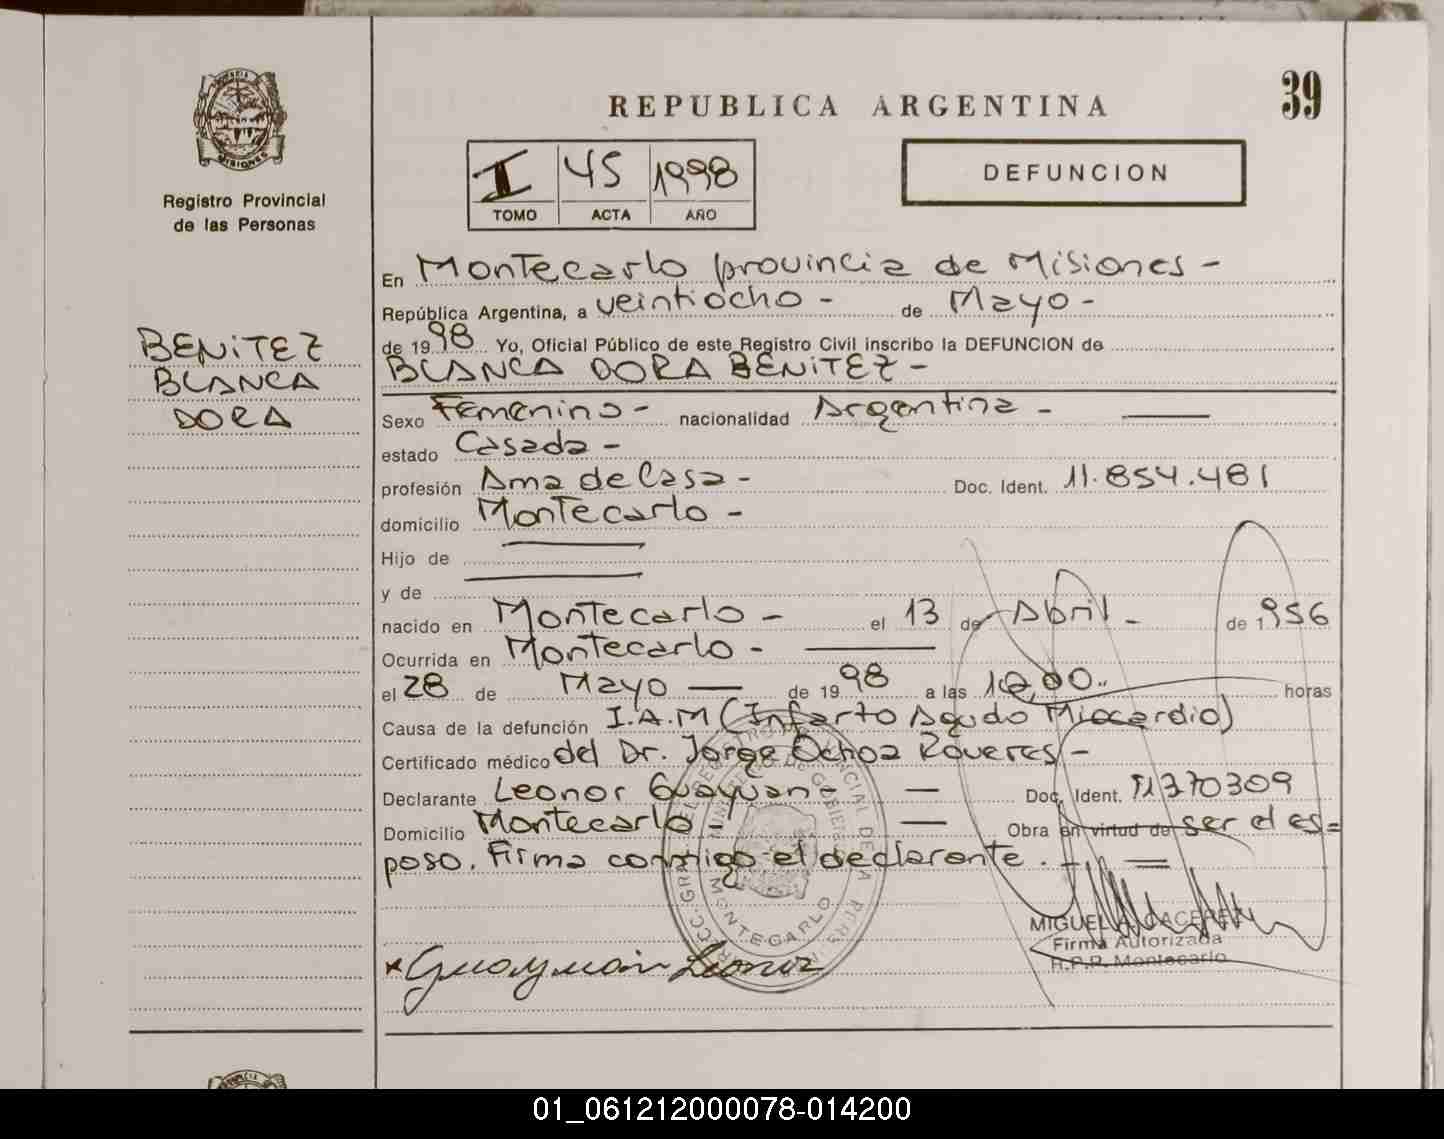 39
REPUBLICA ARGENTINA
PROVINCIA
MISIONES
Registro Provincial
de las Personas
I 45 1998
TOMO ACTA AÑO
DEFUNCION
BENITEZ
BLANCA
DORA
En Montecarlo provincia de Misiones -
República Argentina, a veintiocho - de Mayo -
de 1998 Yo, Oficial Público de este Registro Civil inscribo la DEFUNCION de
BLANCA DORA BENITEZ -
Sexo Femenino - nacionalidad Argentina -
estado Casada -
profesión Ama de Casa - Doc. Ident. 11.854.481
domicilio Montecarlo -
Hijo de
y de
nacido en Montecarlo - el 13 de Abril - de 1956
Ocurrida en Montecarlo -
el 28 de Mayo — de 1998 a las horas
Causa de la defunción I.A.M (Infarto Agudo Miocardio)
Certificado médico del Dr. Jorge Ochoa Roveres -
Declarante Leonor Guayuan - Doc. Ident. 11370309
Domicilio Montecarlo - Obra en virtud de ser el es=
poso. Firma conmigo el declarante. -
MONTECARLO
Guayuan Leonor
MIGUEL A. CACERES
Firma Autorizada
R.P.P. Montecarlo
01_061212000078-014200